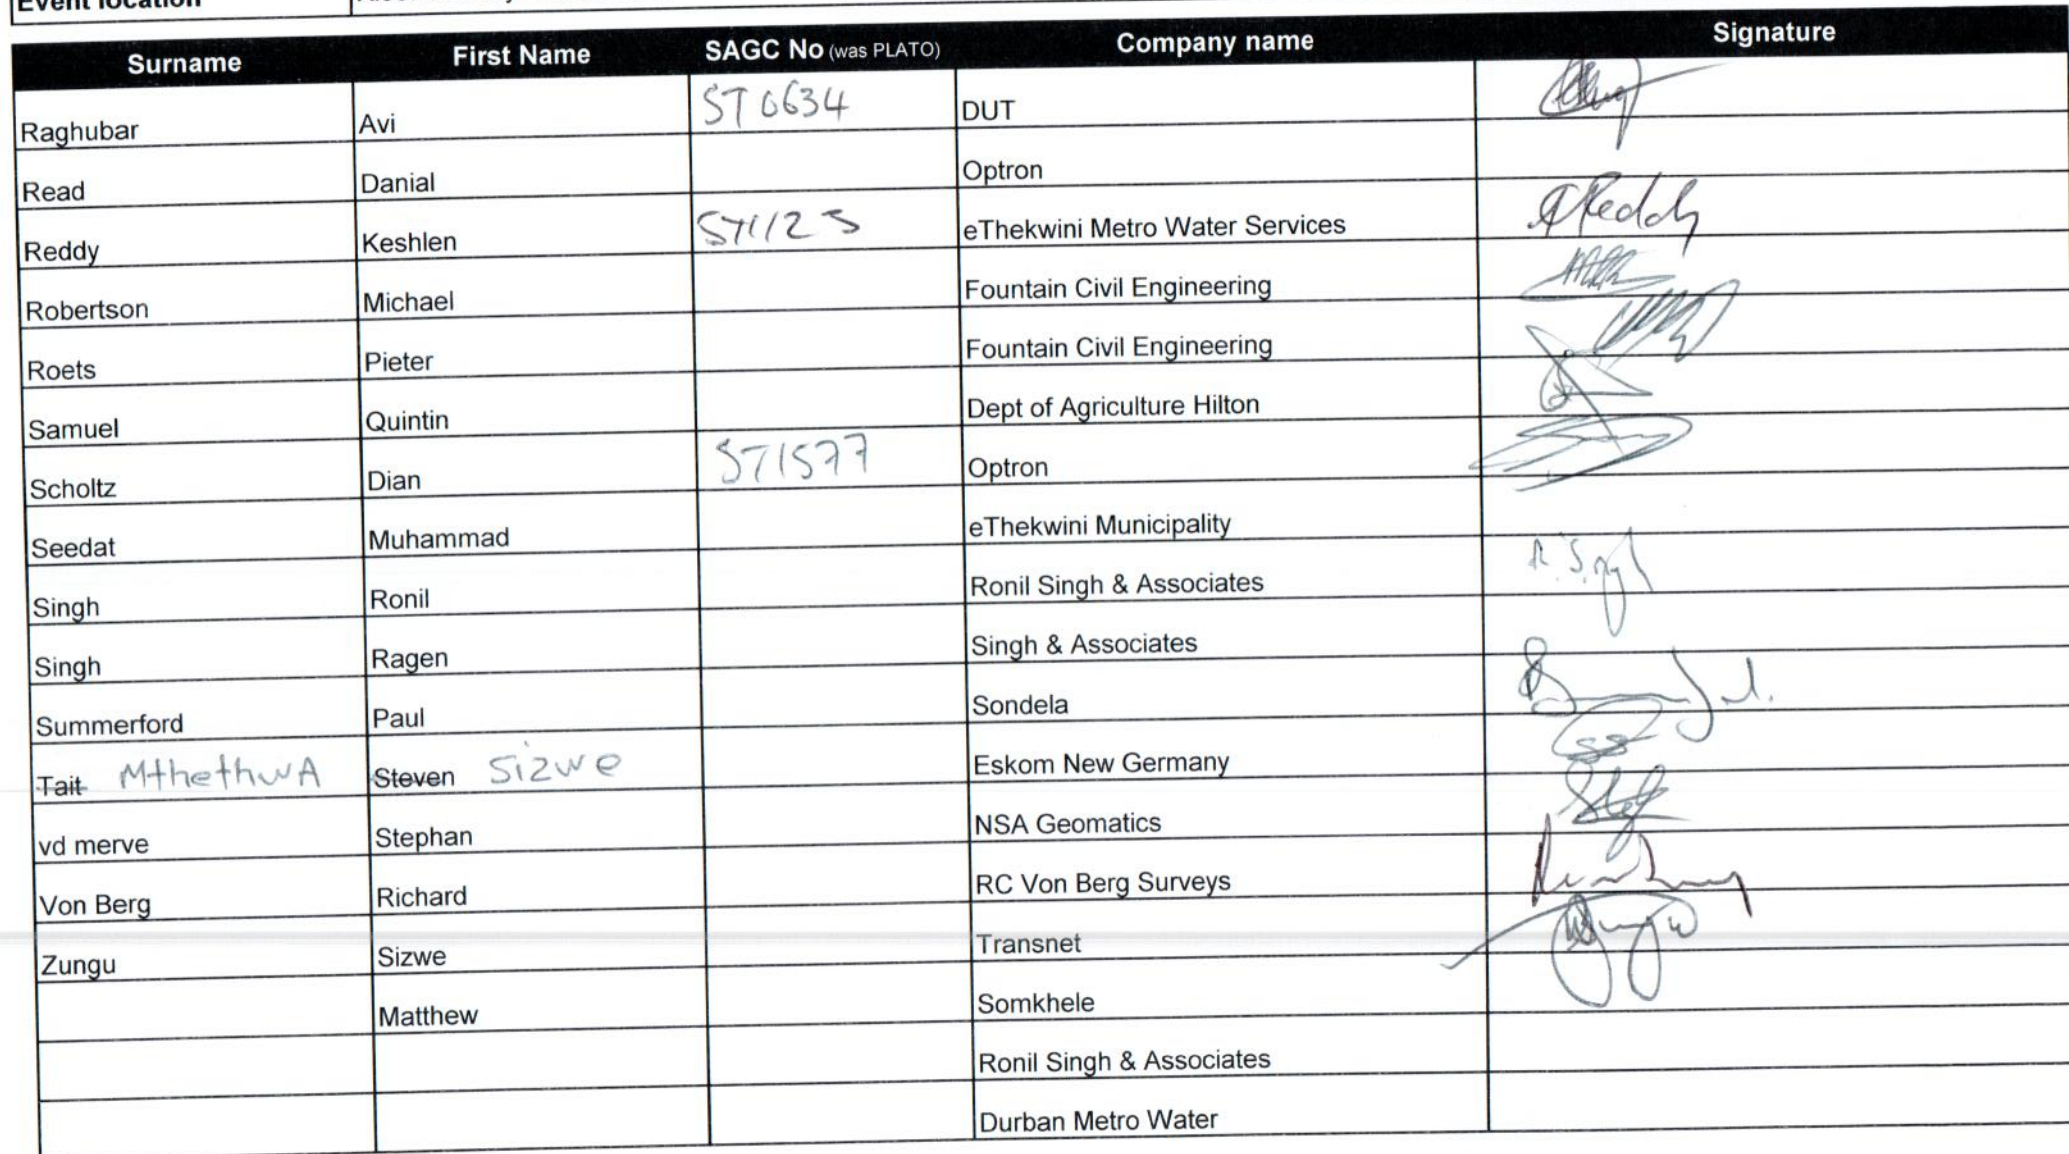 Event location
Surname First Name SAGC No (was PLATO) Company name Signature
Raghubar Avi ST0634 DUT
Read Danial Optron
Reddy Keshlen ST1125 eThekwini Metro Water Services Reddy
Robertson Michael Fountain Civil Engineering
Roets Pieter Fountain Civil Engineering
Samuel Quintin Dept of Agriculture Hilton
Scholtz Dian ST1577 Optron
Seedat Muhammad eThekwini Municipality
Singh Ronil Ronil Singh & Associates R. Singh
Singh Ragen Singh & Associates
Summerford Paul Sondela
Tait MthethwA Steven Sizwe Eskom New Germany
vd merve Stephan NSA Geomatics
Von Berg Richard RC Von Berg Surveys
Zungu Sizwe Transnet
Matthew Somkhele
Ronil Singh & Associates
Durban Metro Water